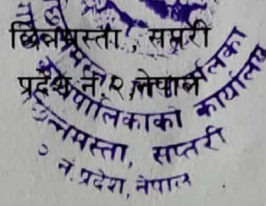 छिन्नमस्ता, सप्तरी
प्रदेश नं. २, नेपाल
पालिकाको कार्यालय
छिन्नमस्ता, सप्तरी
२ नं. प्रदेश, नेपाल